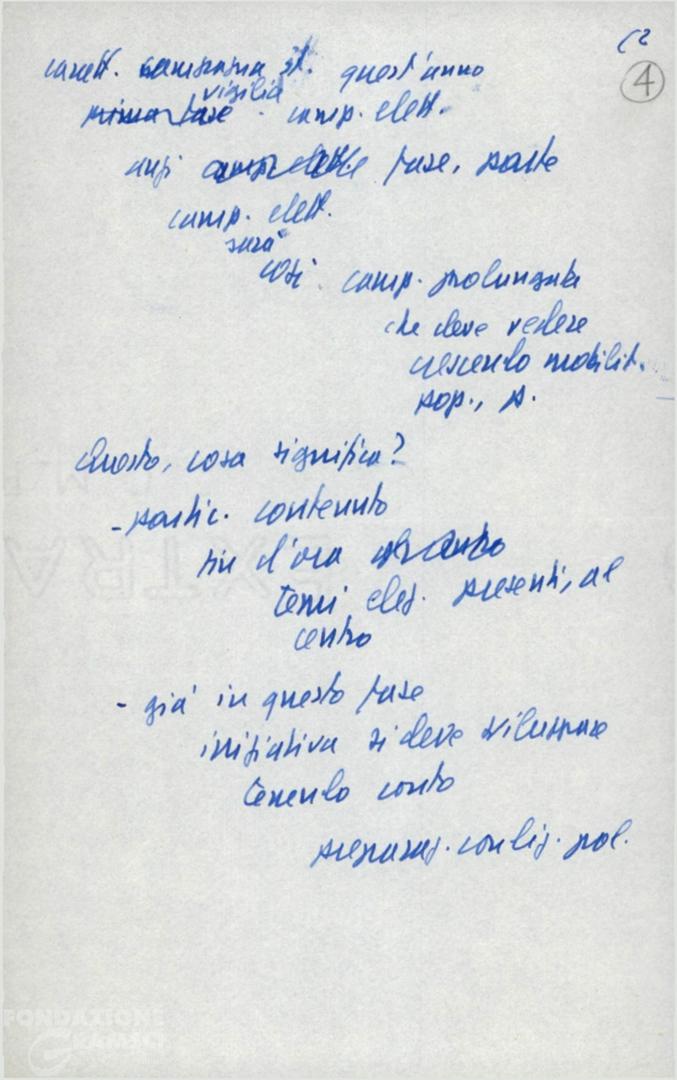 (2
4
caratt. campagna st. quest'anno
vigilia
prima fase camp. elett.
anzi fase, parte
camp. elett.
sarà
così camp. prolungata
che deve vedere
crescendo mobilit.
pop., p.
Questo, cosa significa?
- partic. contenuto
fin d'ora
temi elez. presenti, al
centro
- già in questa fase
iniziativa si deve sviluppare
tenendo conto
preparaz. condiz. pol.
EXTRA
FONDAZIONE
GRAMSCI